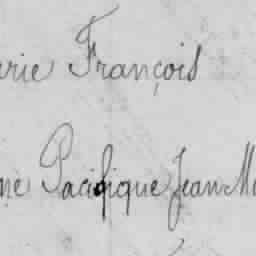 rie François
ne Pacifique Jean M